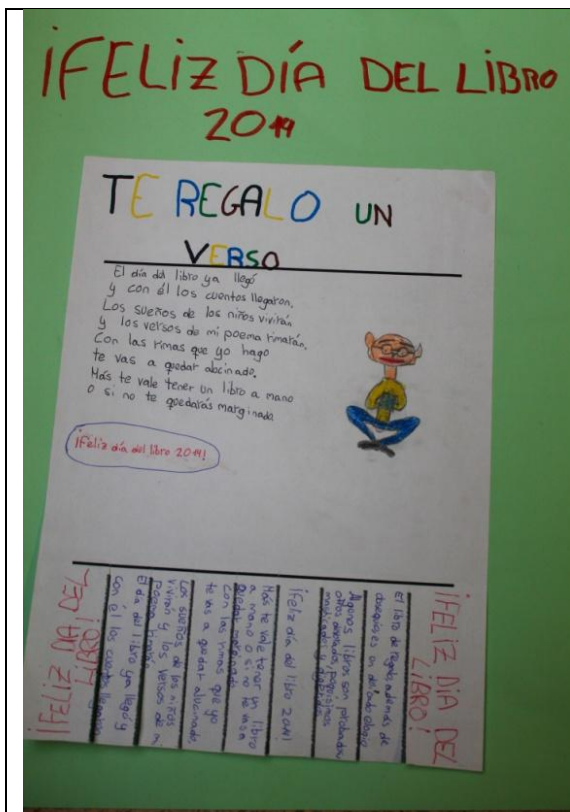 ¡FELIZ DÍA DEL LIBRO
2014
TE REGALO UN
VERSO
El día del libro ya llegó
y con él los cuentos llegaron.
Los sueños de los niños vivirán
y los versos de mi poema rimarán.
Con las rimas que yo hago
te vas a quedar alucinado.
Más te vale tener un libro a mano
o si no te quedarás marginado.
¡Feliz día del libro 2014!
¡FELIZ DÍA DEL
LIBRO!
El día del libro ya llegó y
con él los cuentos llegaron
Los sueños de los niños
vivirán y los versos de mi
poema rimarán
Con las rimas que yo
te vas a quedar alucinado,
Más te vale tener un libro
a mano o si no te vas a
quedar marginado
¡Feliz día del libro 2014!
Algunos libros son probados,
otros
masticados y digeridos
El libro de regalo, además de
obsequio es un
¡FELIZ DÍA DEL
LIBRO!